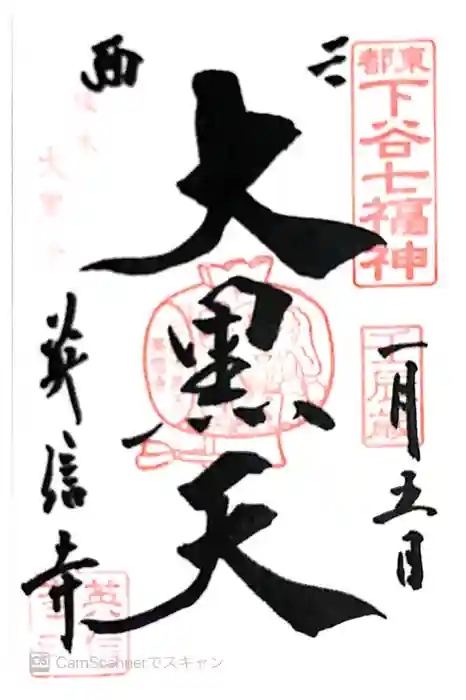 東都
下谷七福神
二
一月五日
大黒天
西
英信寺
英信
CamScannerでスキャン